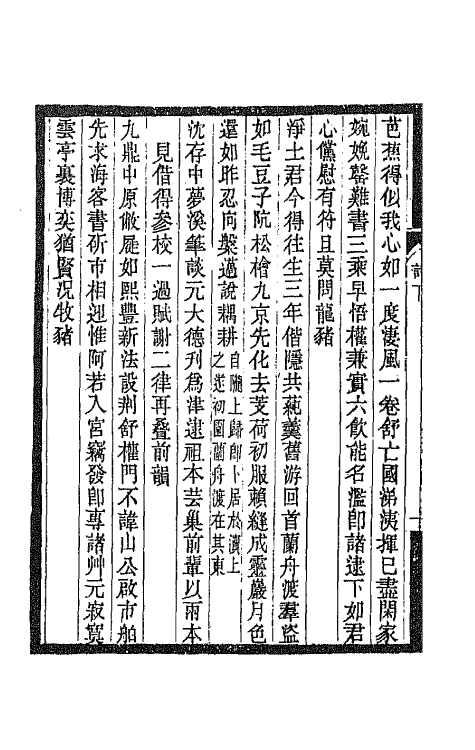 芭蕉得似我心如一度淒風一卷舒亡國涕洟揮已盡閑家
婉娩罄難書三乘早悟權兼實六飲能名濫卽諸逮下如君
心儻慰有符且莫問龍豬
淨土君今得往生三年偕隱共蓴羹舊游回首蘭舟渡羣盜
如毛豆子阬松檜九京先化去芰荷初服賴縫成靈巖月色
還如昨忍向槃薖說耦耕自隴上歸卽卜居於瀆上
之近初園蘭舟渡在其東
沈存中夢溪筆談元大德刊爲津逮祖本芸巢前輩以兩本
見借得參校一過賦謝二律再叠前韻
九鼎中原敝屣如熙豐新法設荆舒權門不諱山公啟市舶
先求海客書斫市相迎惟阿若入宮竊發卽專諸艸元寂寞
雲亭裏博奕猶賢況牧豬